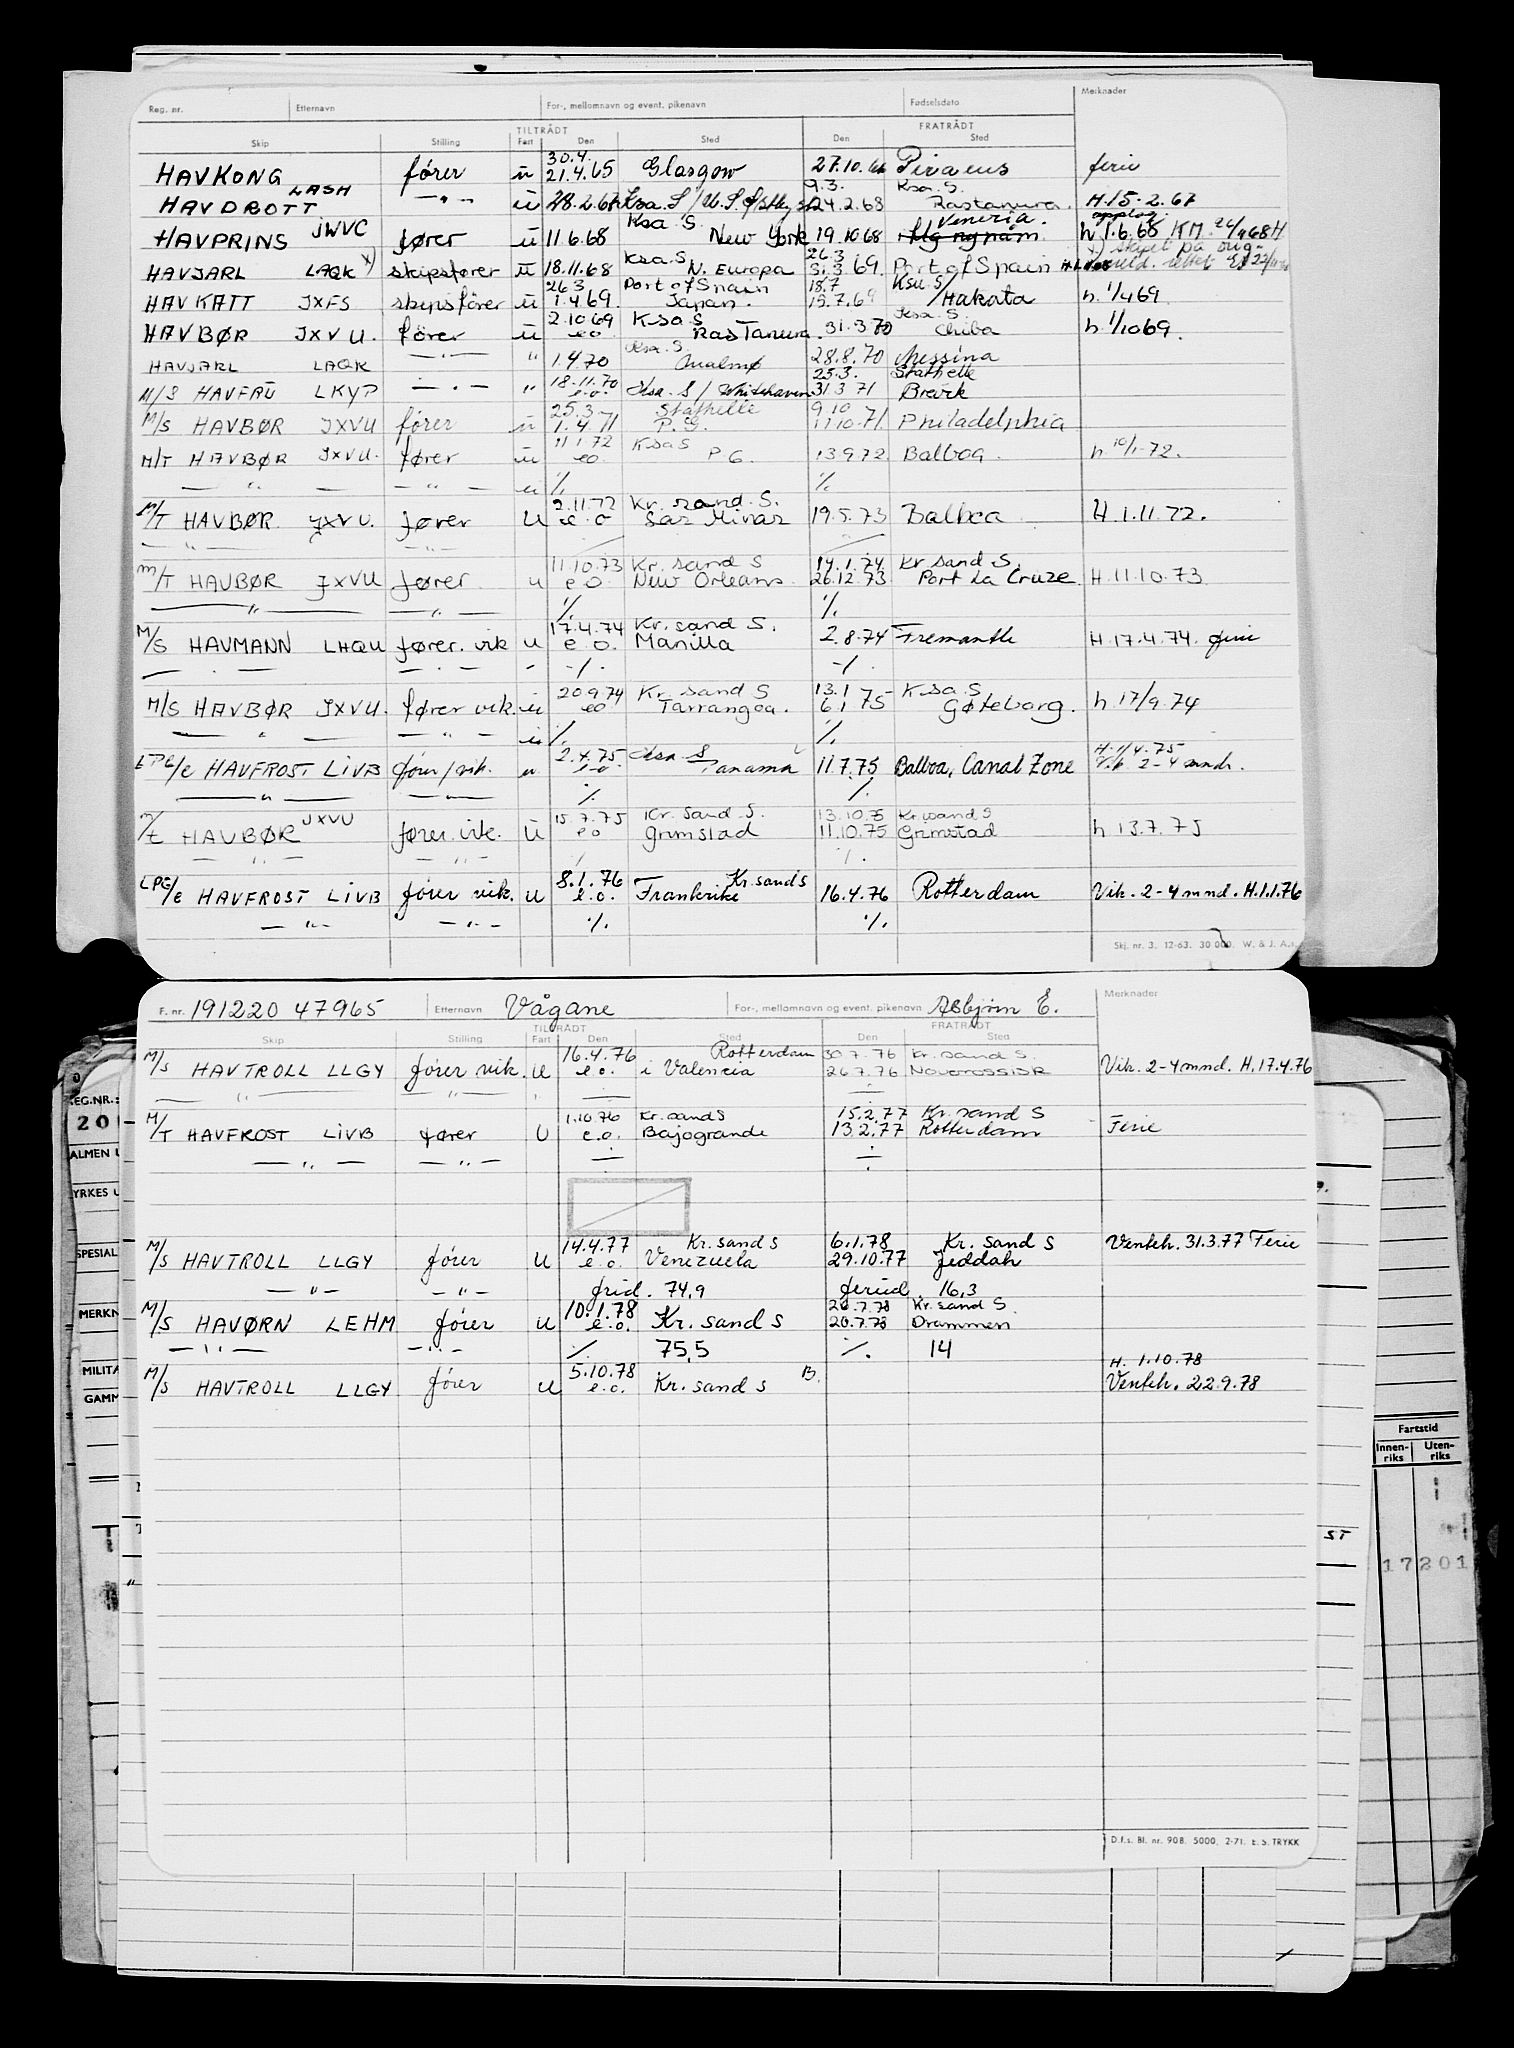 Reg. nr. Etternavn For-, mellomnavn og event. pikenavn Fødselsdato Merknader
TILTRÅDT FRATRÅDT
Skip Stilling Fart Den Sted Den Sted
30.4.
HAVKONG fører u 21.4.65 Glasgow 27.10.66 Piraeus ferie
LASH 9.3. Ksa. S.
HAVDROTT — " — u 28.2.67 Ksa. S / 24.2.68 Rastanura. H.15.2.67
JWVC Ksa S. Veneria.
HAVPRINS fører u 11.6.68 New York 19.10.68 h 1.6.68 KM
26.3
HAVJARL LAQK x) skipsfører u 18.11.68 Ksa. S N. Europa 31.3 69. Port of Spain
26.3 Port of Spain 18.7 Ksa. S/
HAVKATT JXFS skipsfører u 1.4.69. Japan. 15.7.69 Hakata h. 1/4 69.
2.10 69 Ksa S Ksa. S.
HAVBØR JXVU. fører u eo RasTanura. 31.3 70 Chiba h 1/10 69.
Ksa. S
HAVJARL LAQK — " — " 1.4.70 28.8.70 Messina
18.11.70 25.3. Stathelle
M/S HAVFRU LKYP — " — " e.o. Ksa. S / Whitehaven 31 3 71 Brevik
25.3 Stathelle 9.10
M/S HAVBØR JXVU fører u 1.4.71 P.G. 11 10.71. Philadelphia
11 1.72 Ksa S
M/T HAVBØR JXVU. fører u eo P G. 13 9 72. Balboa. h 10/1-72.
— " — — " — u % %
2.11.72 Kr. sand. S.
M/T HAVBØR JXVU. fører U e.o Sas Minas 19.5.73 Balboa H.1.11.72.
— " — — " —
11.10.73 Kr. sand S 14.1.74 Kr sand S.
M/T HAVBØR JXVU fører u e o. New Orleans. 26.12.73 Port La Cruze H.11.10.73.
— " — — " — % %
17.4.74 Kr. sand S.
M/S HAVMANN LHQU fører. vik u e.o. Manilla 2.8.74 Fremantle H.17.4.74. ferie
— " — — " — - % %
20 9 74 Kr. sand S 13.1 Ksa S
M/S HAVBØR JXVU. fører vik. u eo Tarrangoa. 6.1 75 Gøteborg. h 17/9.74
— " — — " — u % %
2.4.75 Ksa S H. 1/4.75
LPG/c HAVFROST LIVB fører/vik. u e.o. Panama 11.7.75 Balboa, Canal Zone Vik 2-4 mndr.
— " — — " — % %
JXVU 15.7.75 Kr. sand. S. 13.10.75 Kr. sand S
m/t HAVBØR fører. vik. u e o Grimstad 11.10.75 Grimstad h 13.7.75
— " — — " — % %
8.1.76 Kr. sand S
LPG/c HAVFROST LIVB fører vik. u e.o. Frankrike 16.4.76 Rotterdam Vik. 2-4 mnd. H.1.1.76
— " — — " — % %
Skj. nr. 3. 12-63. 30 000. W. & J. A.s.
F. nr. 191220 47965 Etternavn Vågane For-, mellomnavn og event. pikenavn Asbjørn E. Merknader
TILTRÅDT FRATRÅDT
Skip Stilling Fart Den Sted Den Sted
16.4.76 Rotterdam 30.7.76 Kr. sand S.
M/S HAVTROLL LLGY fører vik. u e.o. i Valencia 26.7.76 Novorossisk Vik. 2-4 mnd. H.17.4.76
— " — — " — "
1.10.76 Kr. sand S 15.2.77 Kr. sand S
M/T HAVFROST LIVB fører U e.o. Bajogrande 13.2.77 Rotterdam Ferie
— " — — " —
14.4.77 Kr. sand S 6.1.78 Kr. sand S Venteh. 31.3.77 Ferie
M/S HAVTROLL LLGY fører u e.o. Venezuela 29.10.77 Jeddah
— " — — " — frid. 74,9 feriid. 16,3
10.1.78 26.7.78 Kr. sand S.
M/S HAVØRN LEHM fører u e.o. Kr. sand S 20.7.78 Drammen
— " — — " — % 75,5 % 14
5.10.78 B. H. 1.10.78
M/S HAVTROLL LLGY fører u e.o. Kr. sand S Venteh. 22.9.78
D.f.s. Bl. nr. 908. 5000. 2-71. E.S. TRYKK
EG.NR.:
20
ALMEN
YRKES
SPESIAL
MERKN
MILITÆ
GAMM
Fartstid
Innen-riks Uten-riks
ST
17201